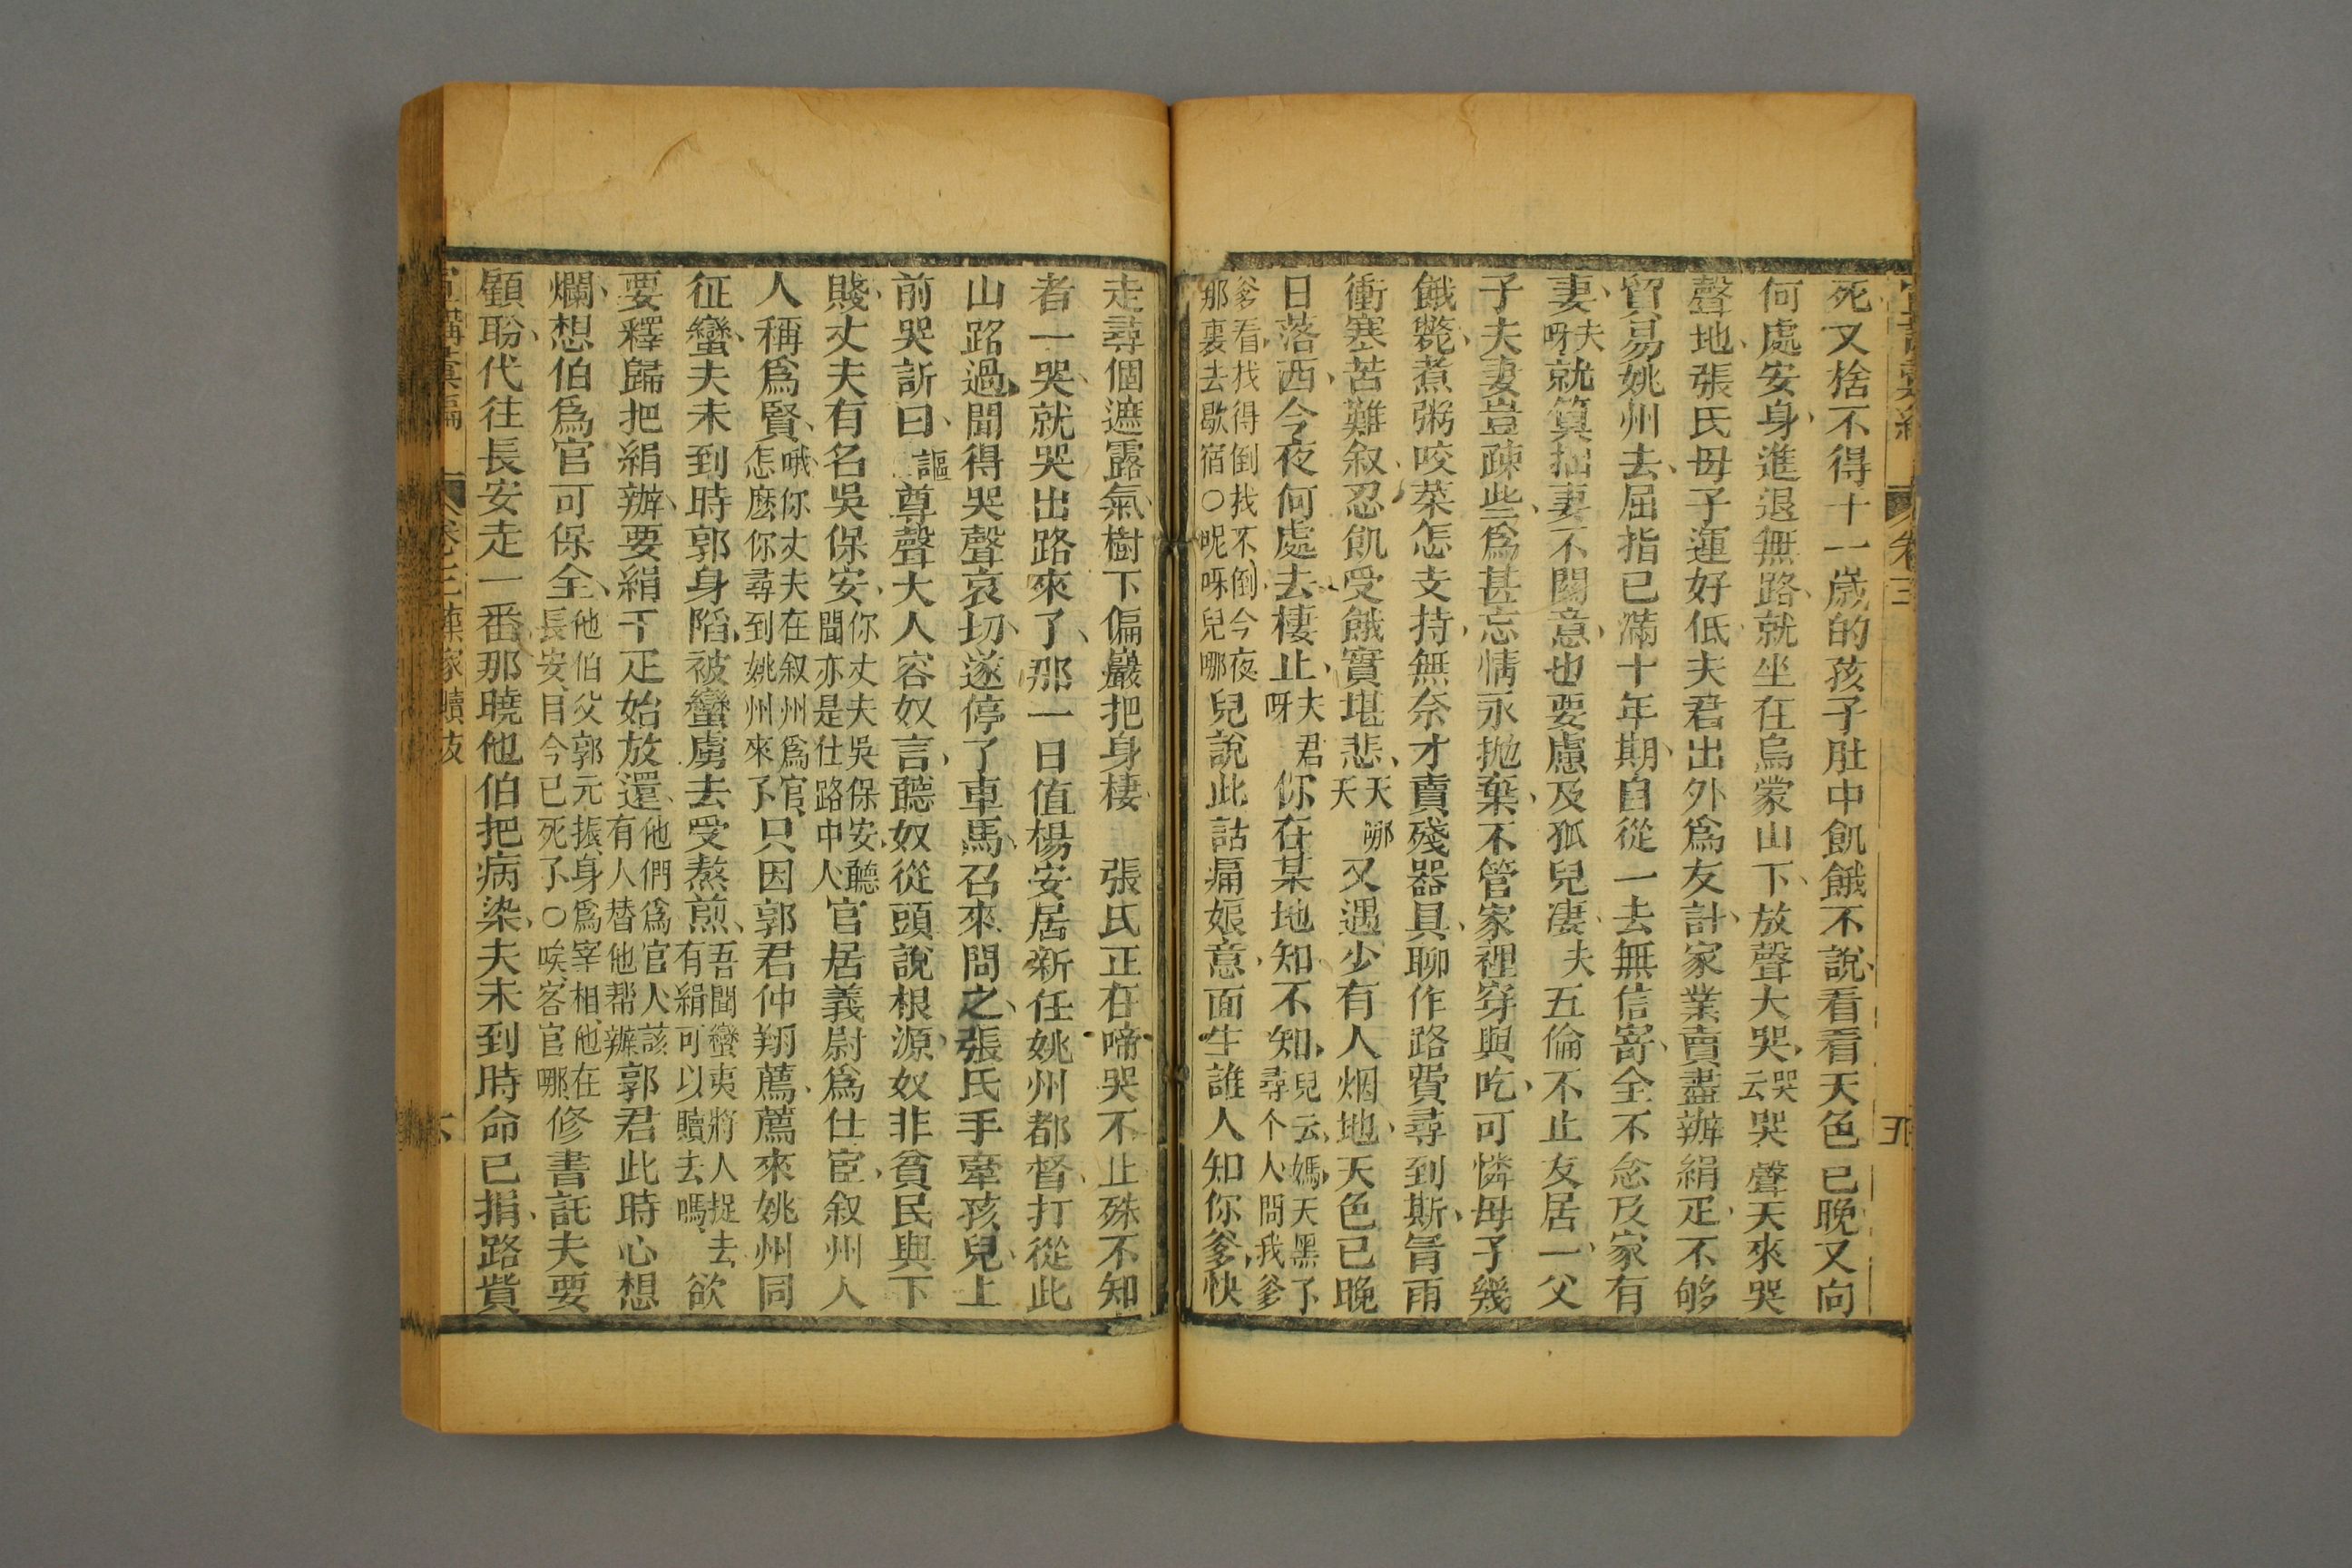 卷三
五
死又捨不得十一歲的孩子肚中飢餓不說看看天色已晚又向
何處安身進退無路就坐在烏蒙山下放聲大哭哭云哭聲天來哭
聲地張氏母子運好低夫君出外爲友計家業賣盡辦絹疋不够
貿易姚州去屈指已滿十年期自從一去無信寄全不念及家有
妻夫呀就算拙妻不關意也要慮及狐兒凄夫五倫不止友居一父
子夫妻豈疎些爲甚忘情永抛棄不管家裡穿與吃可憐母子幾
餓斃煮粥咬菜怎支持無奈才賣殘器具聊作路費尋到斯冐雨
衝塞苦難叙忍飢受餓實堪悲天天哪又遇少有人烟地天色已晚
日落西今夜何處去棲止夫君呀你在某地知不知兒云媽天黑了尋个人問我爹
爹看找得倒找不倒今夜那裏去歇宿○呢呀兒哪兒說此話痛娘意面生誰人知你爹快
走尋個遮露氣樹下偏巖把身棲 張氏正在啼哭不止殊不知
者一哭就哭出路來了那一日值楊安居新任姚州都督打從此
山路過聞得哭聲哀切遂停了車馬召來問之張氏手牽孩兒上
前哭訴曰謳尊聲大人容奴言聽奴從頭說根源奴非貧民與下
賤丈夫有名吳保安你丈夫吳保安聽聞亦是仕路中人官居義尉爲仕宦叙州人
人稱爲賢哦你丈夫在叙州爲官怎麽你尋到姚州來了只因郭君仲翔薦薦來姚州同
征蠻夫未到時郭身陷被蠻虜去受熬煎吾聞蠻夷將人捉去有絹可以贖去嗎欲
要釋歸把絹辦要絹千疋始放還他們爲官人該有人替他帮辦郭君此時心想
爛想伯爲官可保全他伯父郭元振身爲宰相他在長安目今已死了○唉客官哪修書託夫要
顧盼代往長安走一番那曉他伯把病染夫未到時命已捐路貲
卷三
六